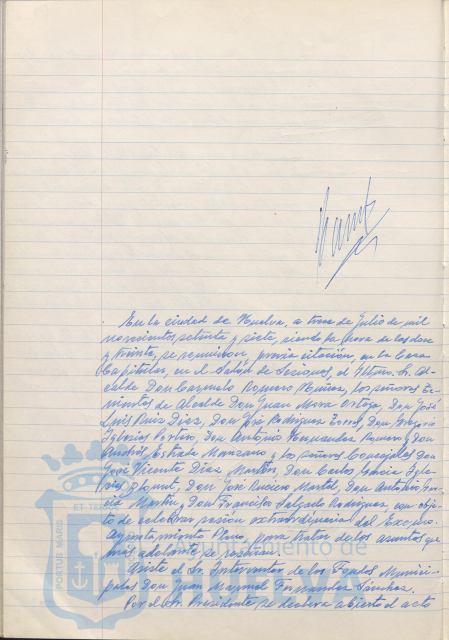 En la ciudad de Huelva, a trece de Julio de mil
novecientos setenta y siete, siendo la hora de las doce
y treinta, se reunieron, previa citación, en la Casa
Capitular, en el Salón de Sesiones, el Iltmo. Sr. Al-
calde Don Carmelo Romero Núñez, los señores Te-
nientes de Alcalde Don Juan Mora Ortega, Don José
Luis Ruiz Díaz, Don José Rodríguez, Don Gregorio
Iglesias, Don Antonio Fernández Romero y Don
Andrés Estrada Manzano y los señores Concejales Don
José Vicente Díaz Martín, Don Carlos García Igle-
sias, Don José Martel, Don Antonio
Martín, Don Francisco Salgado Rodríguez, con obje-
to de celebrar sesión extraordinaria del Excmo.
Ayuntamiento Pleno, para tratar de los asuntos que
más adelante se reseñan.
Asiste el Sr. Interventor de los Fondos Munici-
pales Don Juan Manuel Fernández Sánchez.
Por el Sr. Presidente se declara abierto el acto
ayuntamiento de
HUELVA
PORTUS MARIS
ET TERRAE